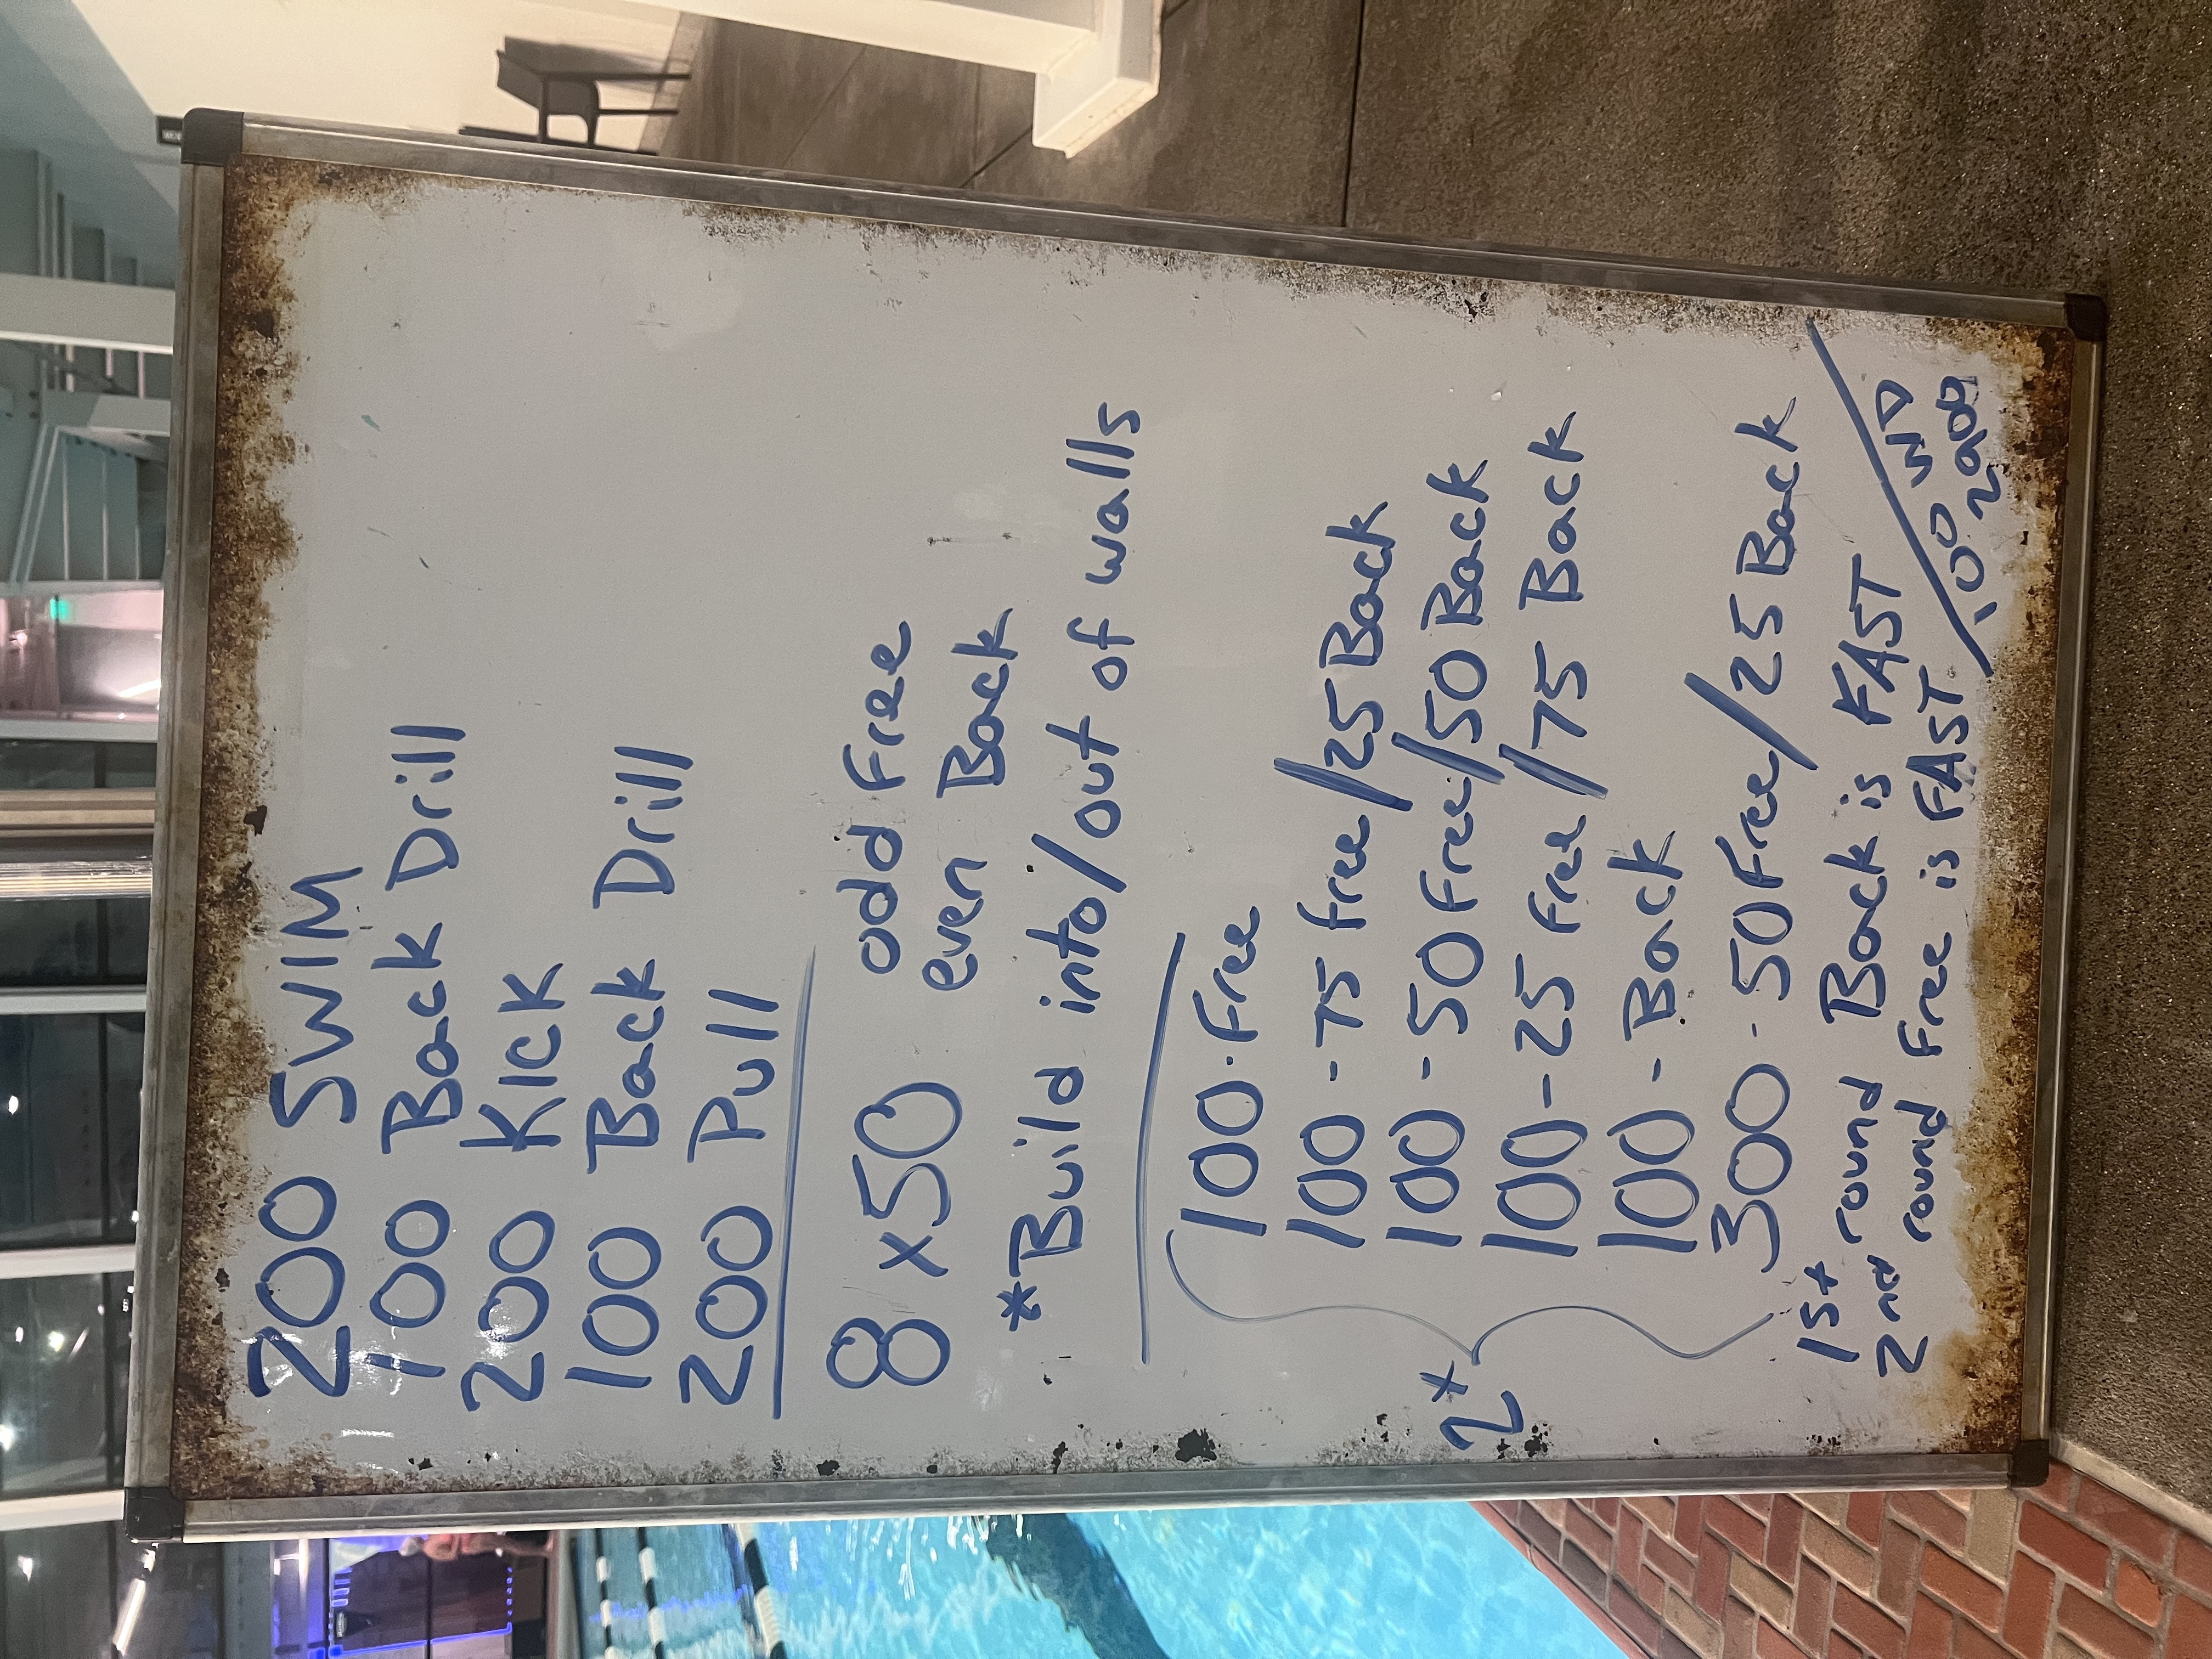 200 SWIM
100 Back Drill
200 KICK
100 Back Drill
200 Pull
8 x 50 odd Free
even Back
*Build into/out of walls
2x
100 - Free
100 - 75 free/25 Back
100 - 50 Free/50 Back
100 - 25 Free/75 Back
100 - Back
300 - 50 Free/25 Back
1st round Back is FAST
2nd round Free is FAST
100 WD
2900